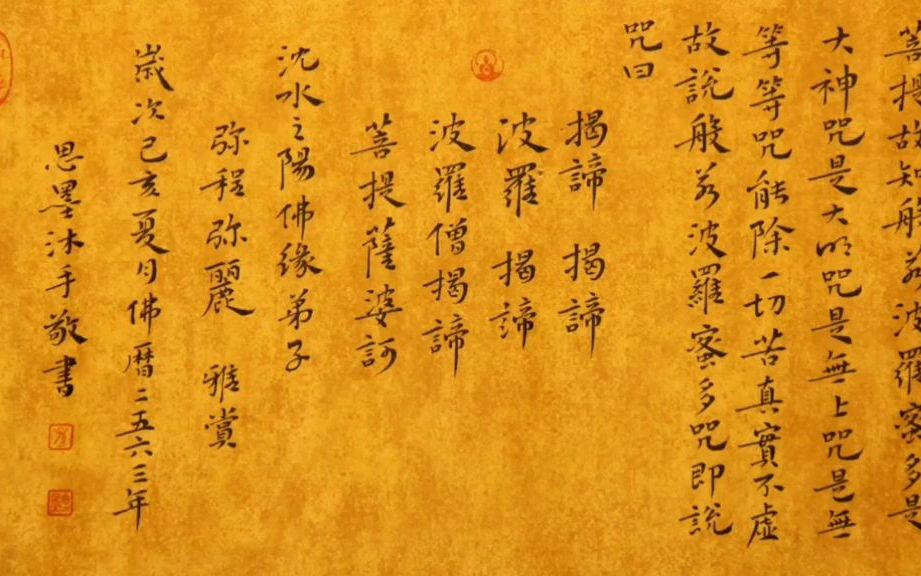 菩提故知般若波羅蜜多是
大神咒是大明咒是無上咒是無
等等咒能除一切苦真實不虛
故說般若波羅蜜多咒即說
咒曰
揭諦 揭諦
波羅 揭諦
波羅僧揭諦
菩提薩婆訶
沈水之陽佛緣弟子
弥程弥麗 雅賞
歲次己亥夏月佛曆二五六三年
思墨沐手敬書